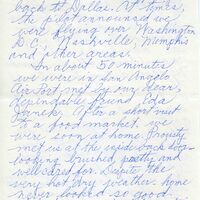 back to Dallas. At times,
the pilot announced we
were flying over Washington
D.C., Nashville, Memphis
and other areas.
In about 50 minutes
we were in San Angelo
Airport, met by our dear,
dependable friend, Eda
after a short visit
to a food market we
were soon at home. Frousty
met us at the inside door
looking brushed, pretty and
well cared for. Despite the
very hot dry weather home
never looked so good